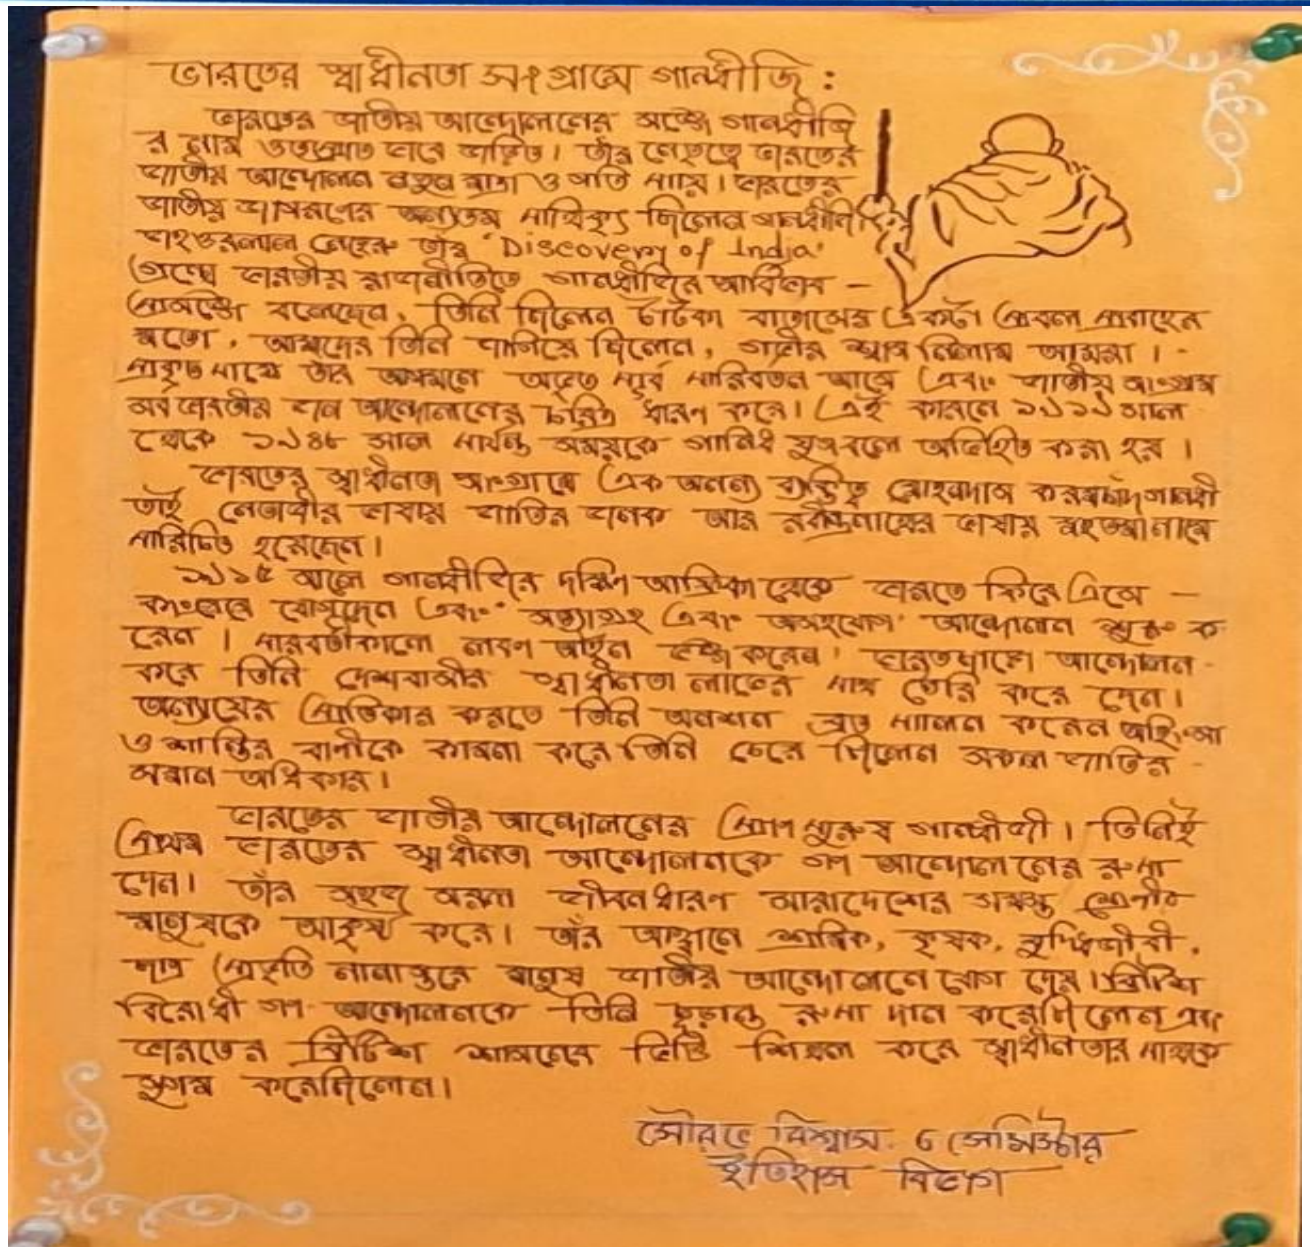 ভারতের স্বাধীনতা সংগ্রামে গান্ধীজি :
ভারতের জাতীয় আন্দোলনের সঙ্গে গান্ধীজি
র নাম ওতপ্রোত ভাবে জড়িত। তাঁর নেতৃত্বে ভারতের
জাতীয় আন্দোলন নতুন মাত্রা ও গতি পায়। ভারতের
জাতীয় জাগরণের অন্যতম পথিকৃৎ ছিলেন গান্ধীজি
জহওরলাল নেহেরু তাঁর 'Discovery of India'
গ্রন্থে ভারতীয় রাজনীতিতে গান্ধীজির আবির্ভাব –
প্রসঙ্গে বলেছেন, তিনি ছিলেন টাটকা বাতাসের একটা প্রবল প্রবাহের
মতো, আমাদের তিনি জাগিয়ে ছিলেন, গভীর শ্বাস নিলাম আমরা।
প্রকৃত পক্ষে তাঁর আগমনে অভূত পূর্ব পরিবর্তন আসে এবং জাতীয় সংগ্রাম
সর্বভারতীয় গন আন্দোলনের চরিত্র ধারণ করে। এই কারনে ১৯১৯ সাল
থেকে ১৯৪৮ সাল পর্যন্ত সময়কে গান্ধি যুগ বলে অভিহিত করা হয়।
ভারতের স্বাধীনতা সংগ্রামে এক অনন্য ব্যক্তিত্ব মোহনদাস করমচাঁদ গান্ধী
তাই নেতাজীর ভাষায় জাতির জনক আর রবীন্দ্রনাথের ভাষায় মহাত্মা নামে
পরিচিত হয়েছেন।
১৯১৫ সালে গান্ধীজির দক্ষিণ আফ্রিকা থেকে ভারতে ফিরে এসে –
কংগ্রেসে যোগদেন এবং 'সত্যাগ্রহ এবং অসহযোগ' আন্দোলন শুরু ক
রেন। পরবর্তীকালে লবণ আইন ভঙ্গ করেন, ভারতছাড়ো আন্দোলন
করে তিনি দেশবাসীর স্বাধীনতা লাভের পথ তৈরি করে দেন।
অন্যায়ের প্রতিকার করতে তিনি অনশন ব্রত পালন করেন অহিংসা
ও শান্তির বানীকে কামনা করে তিনি চেয়ে ছিলেন সকল জাতির
সমান অধিকার।
ভারতের জাতীয় আন্দোলনের প্রাণ পুরুষ গান্ধীজী। তিনিই
প্রথম ভারতের স্বাধীনতা আন্দোলনকে গণ আন্দোলনের রূপ
দেন। তাঁর সহজ সরল জীবনধারণ সারাদেশের সমস্ত শ্রেণীর
মানুষকে আকৃষ্ট করে। তাঁর আহ্বানে শ্রমিক, কৃষক, বুদ্ধিজীবী,
ছাত্র প্রভৃতি নানাস্তরে মানুষ জাতীয় আন্দোলনে যোগ দেয়। ব্রিটিশ
বিরোধী গণ আন্দোলনকে তিনি চূড়ান্ত রূপ দান করেছিলেন এবং
ভারতের ব্রিটিশ শাসনের ভিত্তি শিথিল করে স্বাধীনতার পথকে
সুগম করেছিলেন।
সৌরভ বিশ্বাস. 6 সেমিস্টার
ইতিহাস বিভাগ